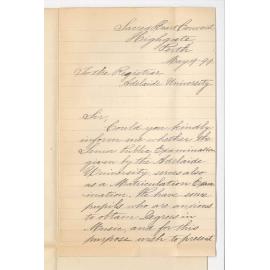 Sacred Heart Convent
Highgate
Perth
May 19. 98
To the Registrar
Adelaide University
Sir,
Could you kindly
inform me whether the
Senior Public Examination
given by the Adelaide
University serves also
as a Matriculation Exam
ination. We have some
pupils who are anxious
to obtain Degrees in
Music and for this
purpose wish to present